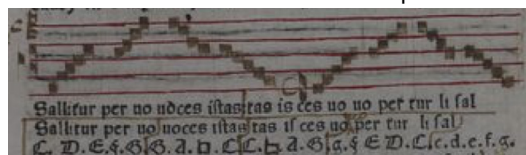 Sallitur per uo uoces istas tas is ces uo uo per tur li sal
Sallitur per uo uoces istas tas is ces uo per tur li sal
C. D. E. F. G. G. A. b. C. C. b. A. G g. F E D. C. c. d. e. f. g.